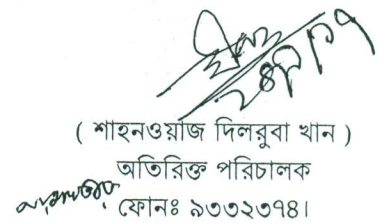 ( শাহনওয়াজ দিলরুবা খান )
অতিরিক্ত পরিচালক
ফোনঃ ৯৩৩২৩৭৪।